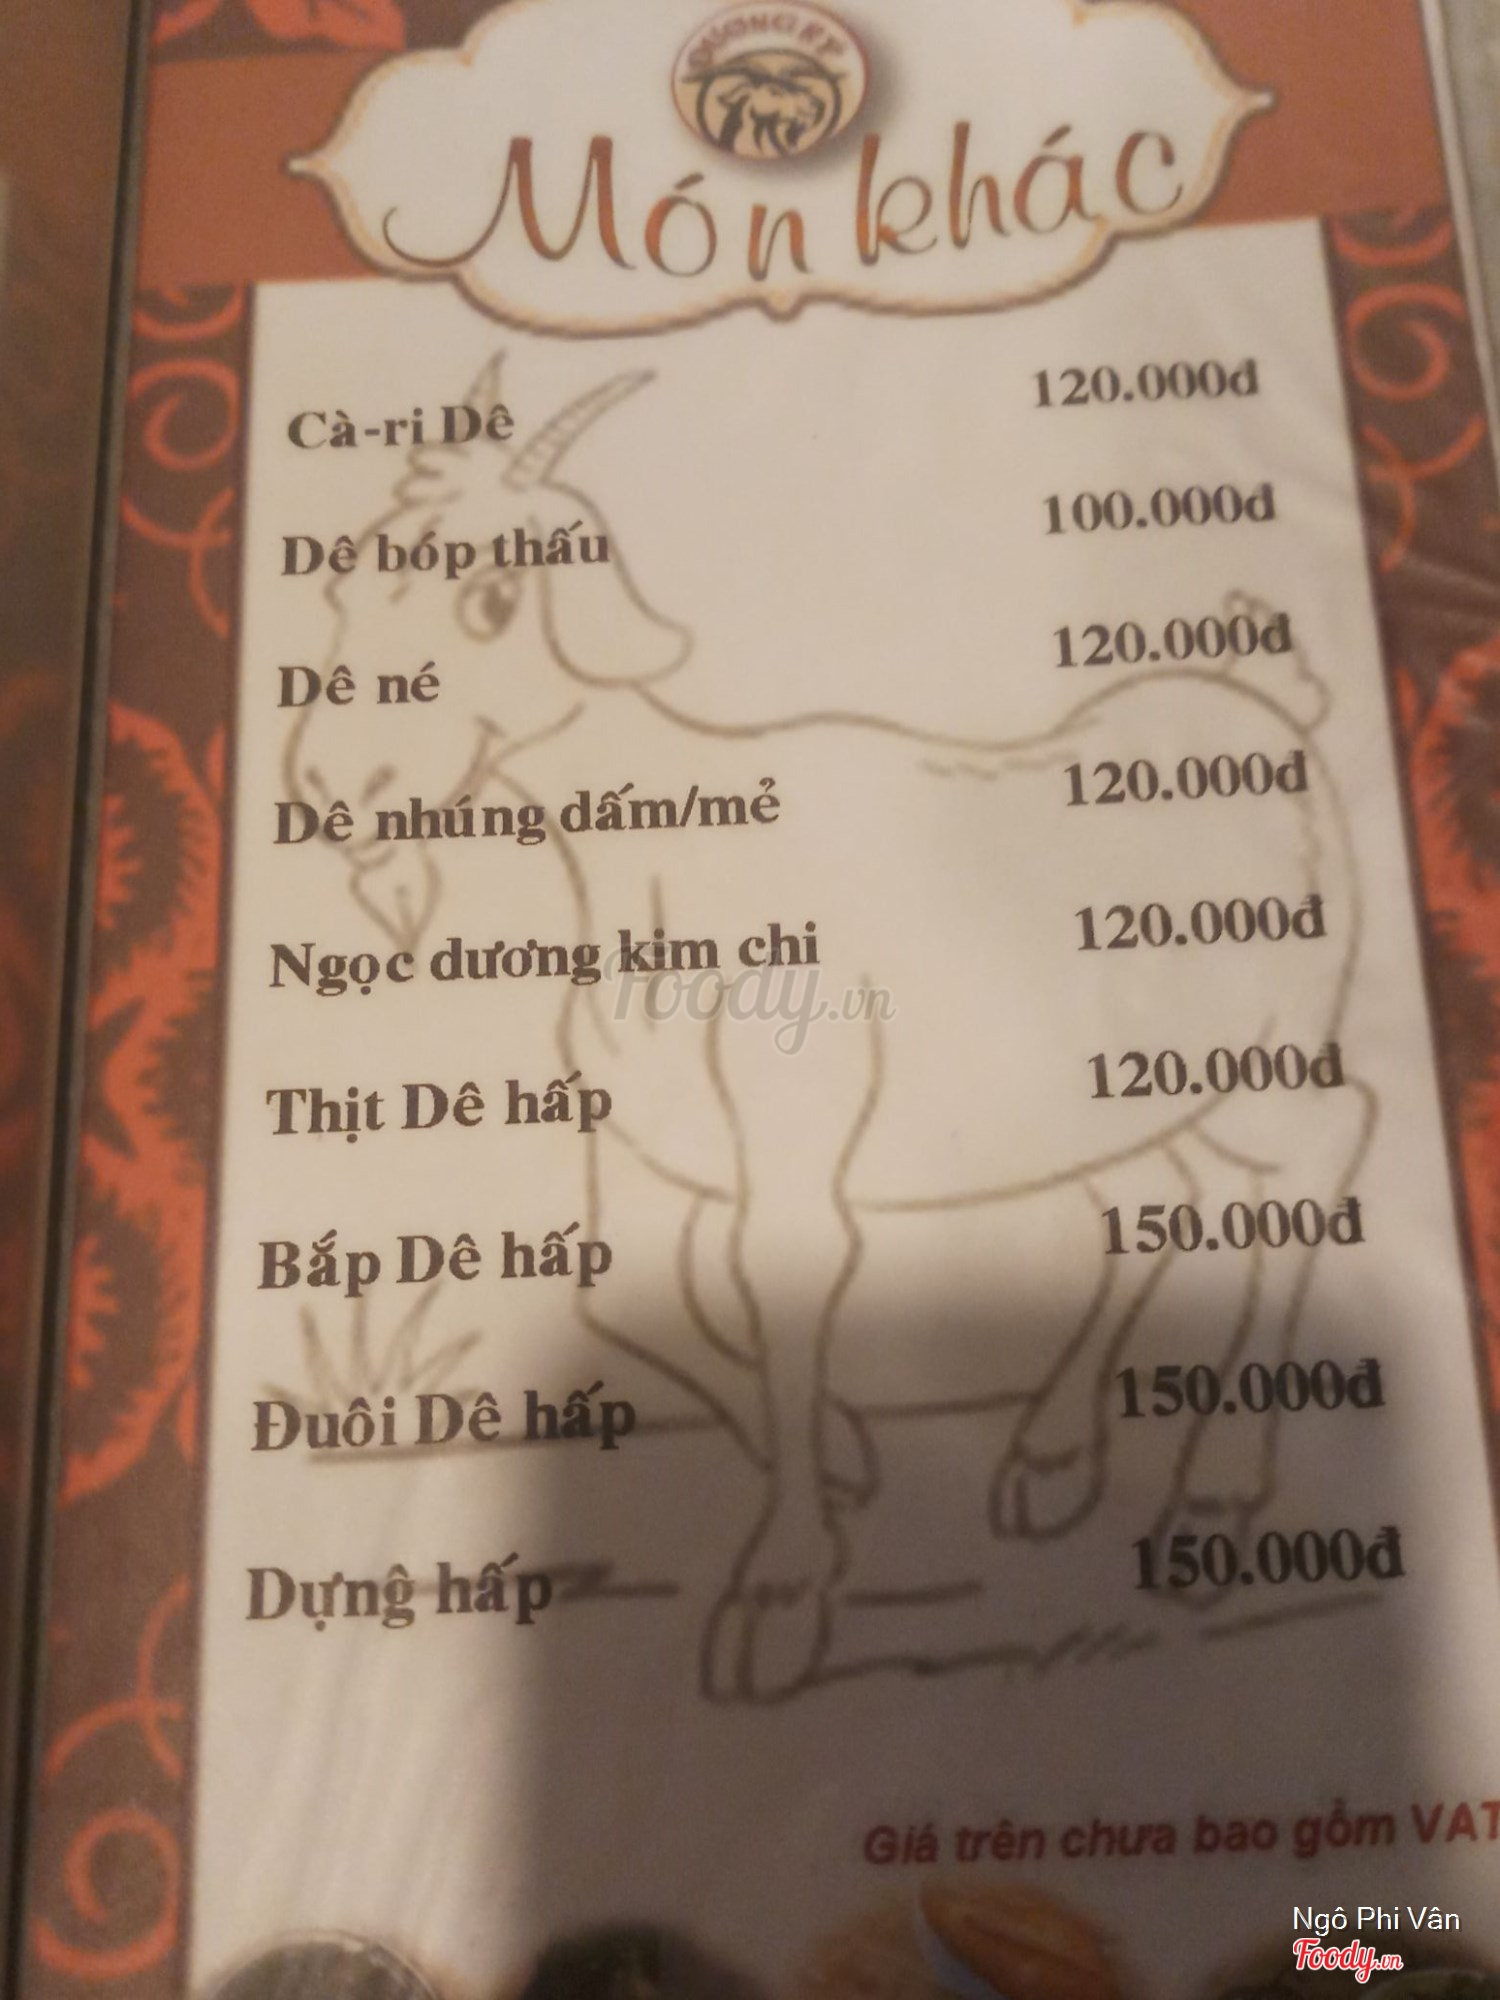 Món khác
Cà-ri Dê 120.000đ
Dê bóp thấu 100.000đ
Dê né 120.000đ
Dê nhúng dấm/mẻ 120.000đ
Ngọc dương kim chi 120.000đ
Thịt Dê hấp 120.000đ
Bắp Dê hấp 150.000đ
Đuôi Dê hấp 150.000đ
Dựng hấp 150.000đ
Foody.vn
Giá trên chưa bao gồm VAT
Ngô Phi Vân
Foody.vn